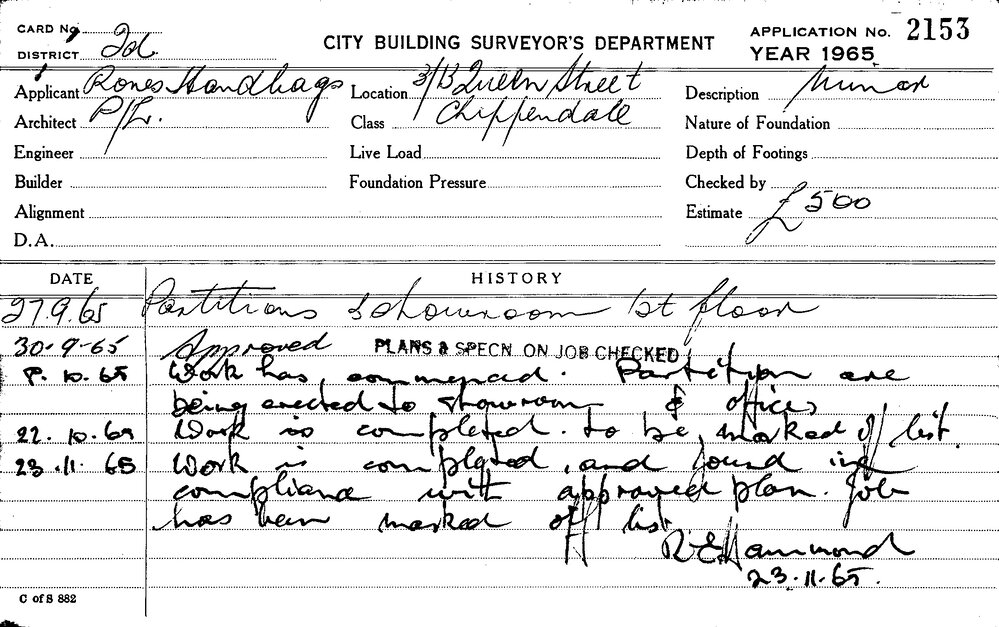 CARD No.
DISTRICT 2d.
CITY BUILDING SURVEYOR'S DEPARTMENT
APPLICATION No. 2153
YEAR 1965
Applicant Rones Handbags P/L.
Location 3/13 Queen Street Chippendale
Description Minor
Architect
Class
Nature of Foundation
Engineer
Live Load
Depth of Footings
Builder
Foundation Pressure
Checked by
Alignment
Estimate £500
D.A.
DATE HISTORY
27.9.65 Partitions showroom 1st floor
30-9-65 Approved PLANS & SPECN ON JOB CHECKED
8.10.65 Work has commenced. Partition are
being erected to showroom & offices
22.10.65 Work is completed. to be marked off list.
23.11.65 Work is completed, and found in
compliance with approved plan. Job
has been marked off list
R E Hammond
23.11.65.
C of S 882